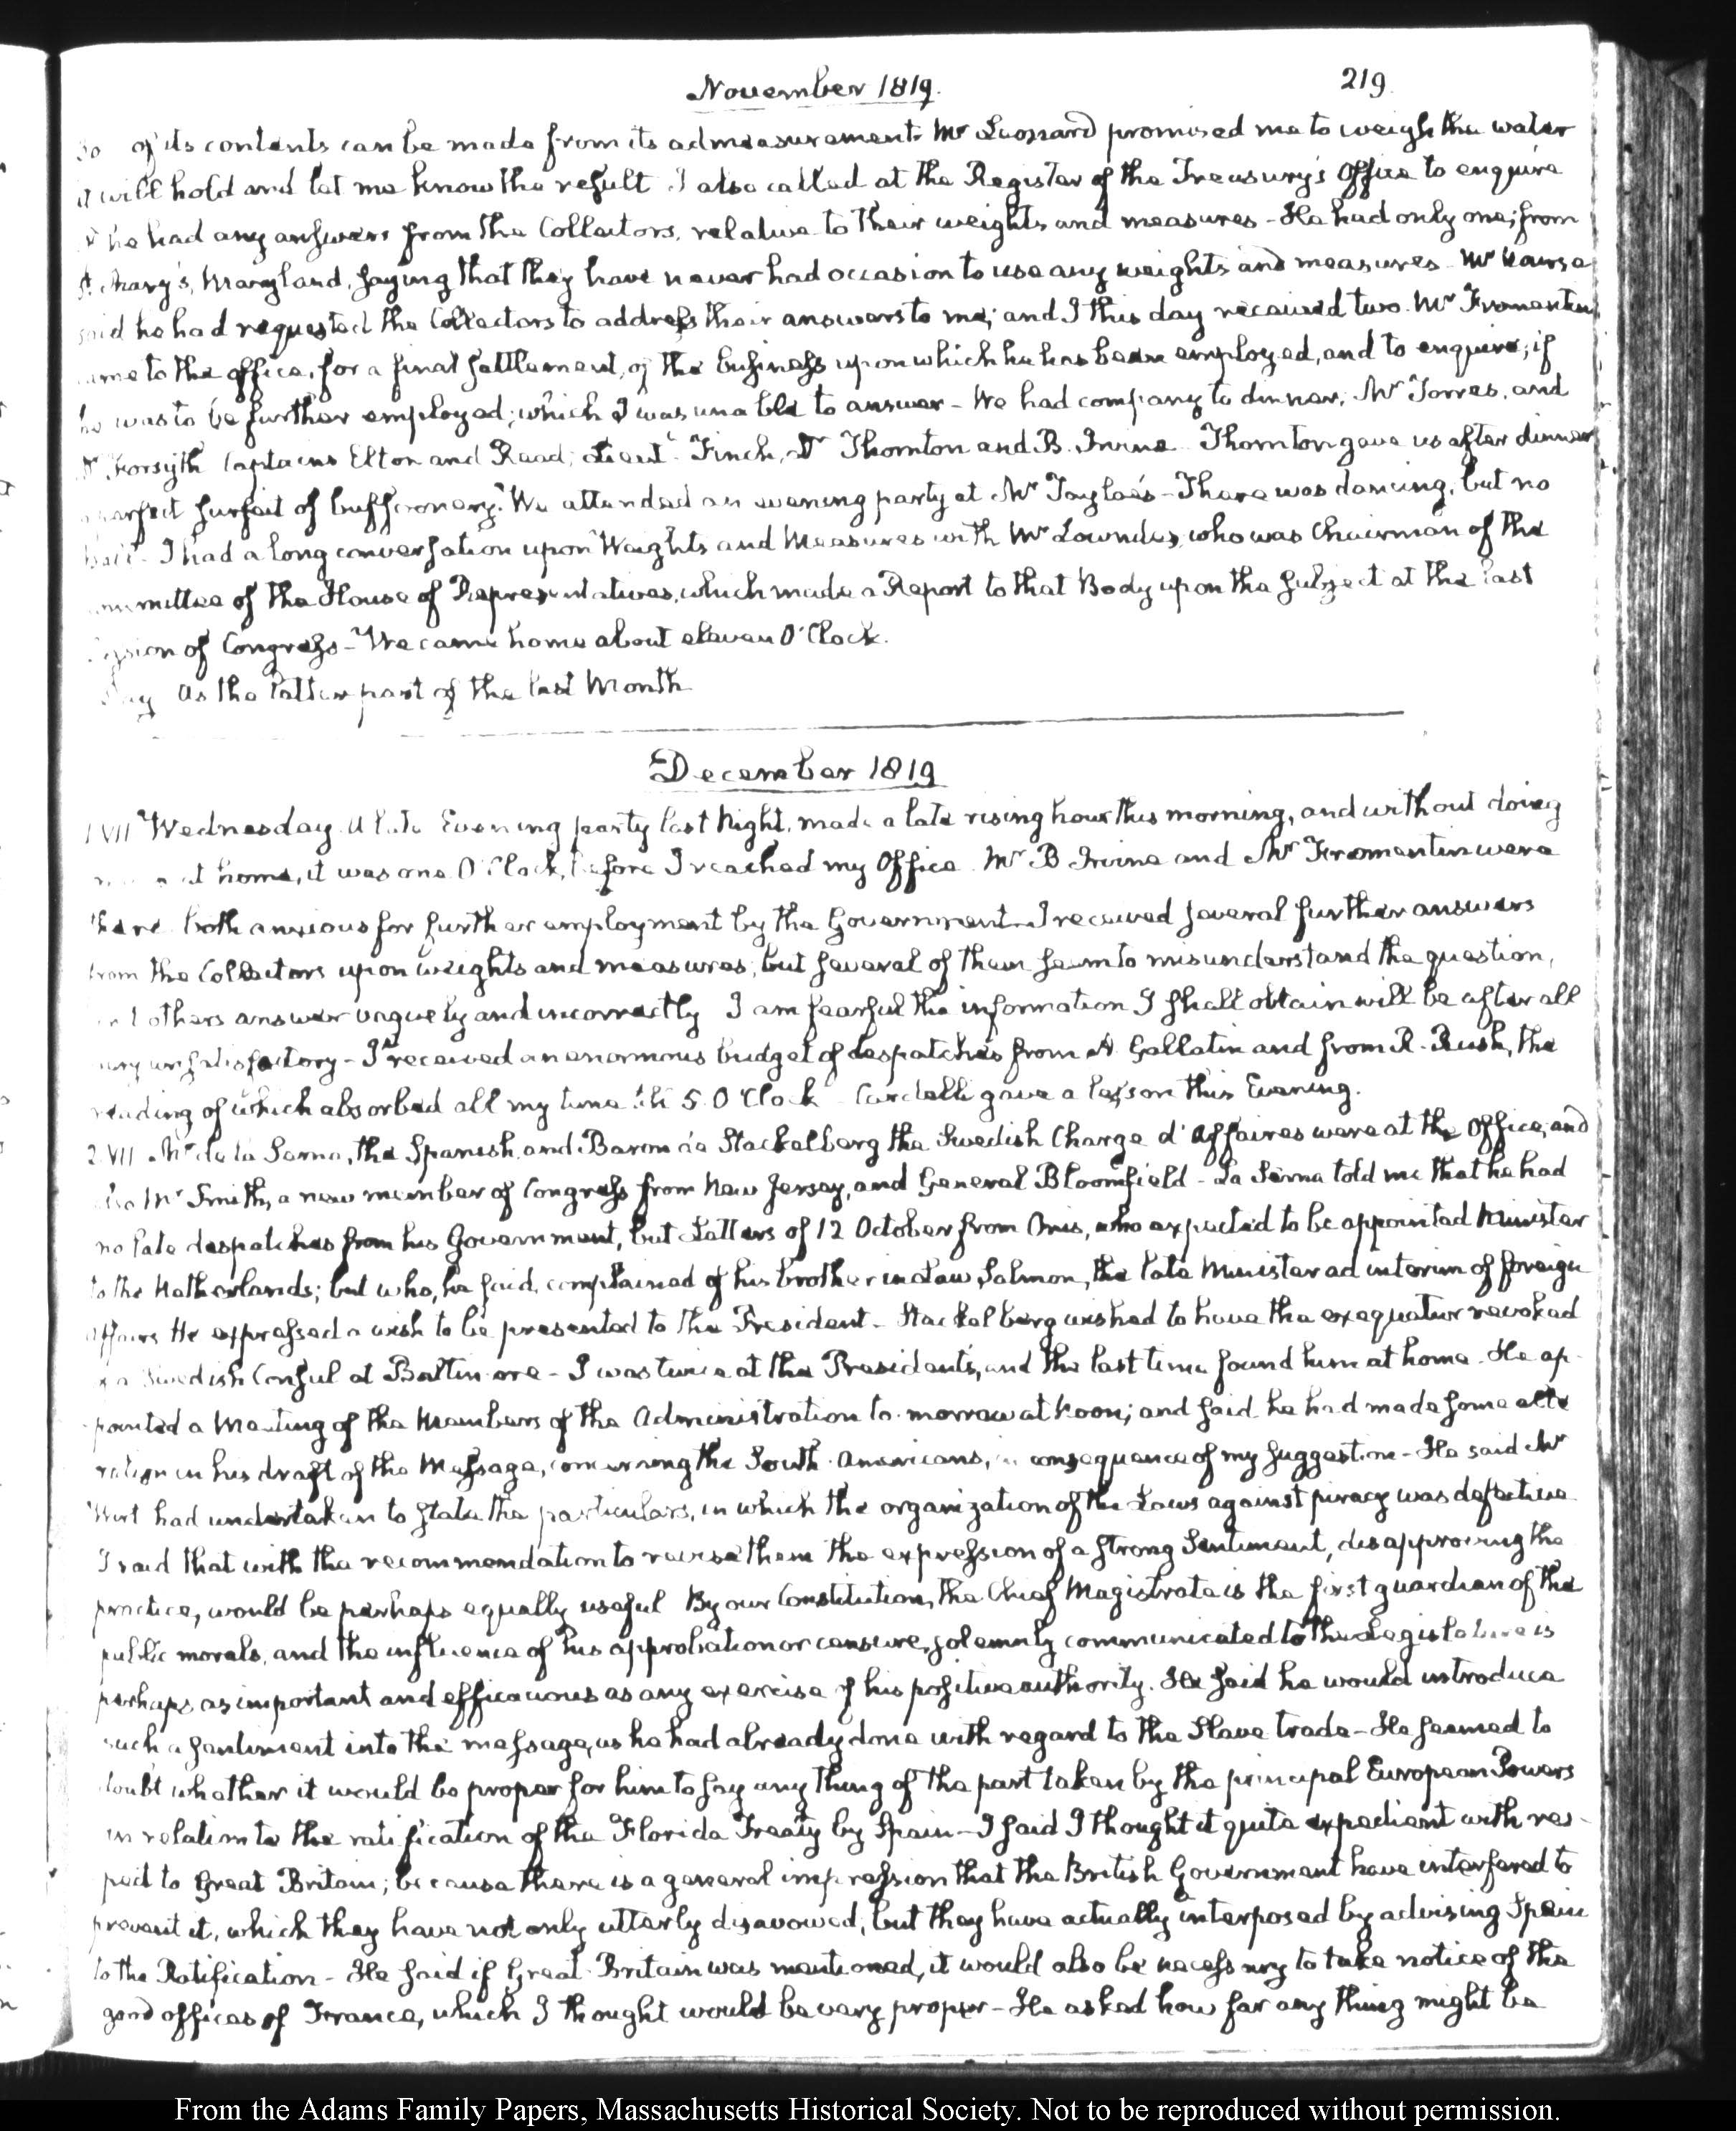 November 1819.
219
30 of its contents can be made from its admeasurement. Mr Leonard promised me to weigh the water
it will hold and let me know the result. I also called at the Register of the Treasury's Office to enquire
if he had any answers from the Collectors, relative to their weights and measures - He had only one; from
St. Mary's, Maryland, saying that they have never had occasion to use any weights and measures. Mr Nourse
said he had requested the Collectors to address their answers to me; and I this day received two. Mr Fromentin
came to the office, for a final settlement, of the business upon which he has been employed, and to enquire; if
he was to be further employed; which I was unable to answer - We had company to dinner, Mr Torres, and
Mr Forsyth Captains Elton and Read; Lieut. Finch, Dr Thornton and B. Irvine. Thornton gave us after dinner
a perfect surfeit of buffoonery. We attended an evening party at Mr Tayloe's - There was dancing, but no
ball - I had a long conversation upon Weights and Measures with Mr Lowndes, who was Chairman of the
Committee of the House of Representatives, which made a Report to that Body upon the subject at the last
Session of Congress - We came home about eleven O'Clock.
Day as the latter part of the last Month
December 1819
1 VII Wednesday. A late Evening party last Night, made a late rising hour this morning, and without doing
at home, it was one O'Clock, before I reached my Office. Mr B Irvine and Mr Fromentin were
there both anxious for further employment by the Government - I received several further answers
from the Collectors upon weights and measures; but several of them seem to misunderstand the question,
and others answer vaguely and incorrectly. I am fearful the information I shall obtain will be after all
very unsatisfactory - I received an enormous budget of despatches from A. Gallatin and from R. Rush, the
reading of which absorbed all my time till 5. O'Clock - Cardelli gave a lesson this Evening.
2. VII Mr de la Serna, the Spanish, and Baron de Stackelberg the Swedish Charge d'Affaires were at the office; and
also Mr Smith, a new member of Congress from New Jersey, and General Bloomfield - La Serna told me that he had
no late despatches from his Government, but Letters of 12 October from Onis, who expected to be appointed Minister
to the Netherlands; but who, he said, complained of his brother in Law, Salmon, the late Minister ad interim of foreign
affairs. He expressed a wish to be presented to the President - Stackelberg wished to have the exequatur revoked
of a Swedish Consul at Baltimore - I was twice at the President's, and the last time found him at home. He ap-
pointed a Meeting of the Members of the Administration to-morrow at Noon; and said he had made some alte
ration in his draft of the Message, concerning the South-Americans, in consequence of my suggestion - He said Mr
Wirt had undertaken to state the particulars, in which the organization of the Laws against piracy was defective
I said that with the recommendation to revise them the expression of a strong Sentiment, disapproving the
practice, would be perhaps equally useful. By our Constitution, the Chief Magistrate is the first guardian of the
public morals, and the influence of his approbation or censure, solemnly communicated to the Legislature is
perhaps as important and efficacious as any exercise of his positive authority. He said he would introduce
such a sentiment into the message, as he had already done with regard to the Slave trade - He seemed to
doubt whether it would be proper for him to say any thing of the part taken by the principal European Powers
in relation to the ratification of the Florida Treaty by Spain - I said I thought it quite expedient with res-
pect to Great Britain; because there is a general impression that the British Government have interfered to
prevent it, which they have not only utterly disavowed, but they have actually interposed by advising Spain
to the Ratification - He said if Great-Britain was mentioned, it would also be necessary to take notice of the
good offices of France, which I thought would be very proper - He asked how far any thing might be
From the Adams Family Papers, Massachusetts Historical Society. Not to be reproduced without permission.